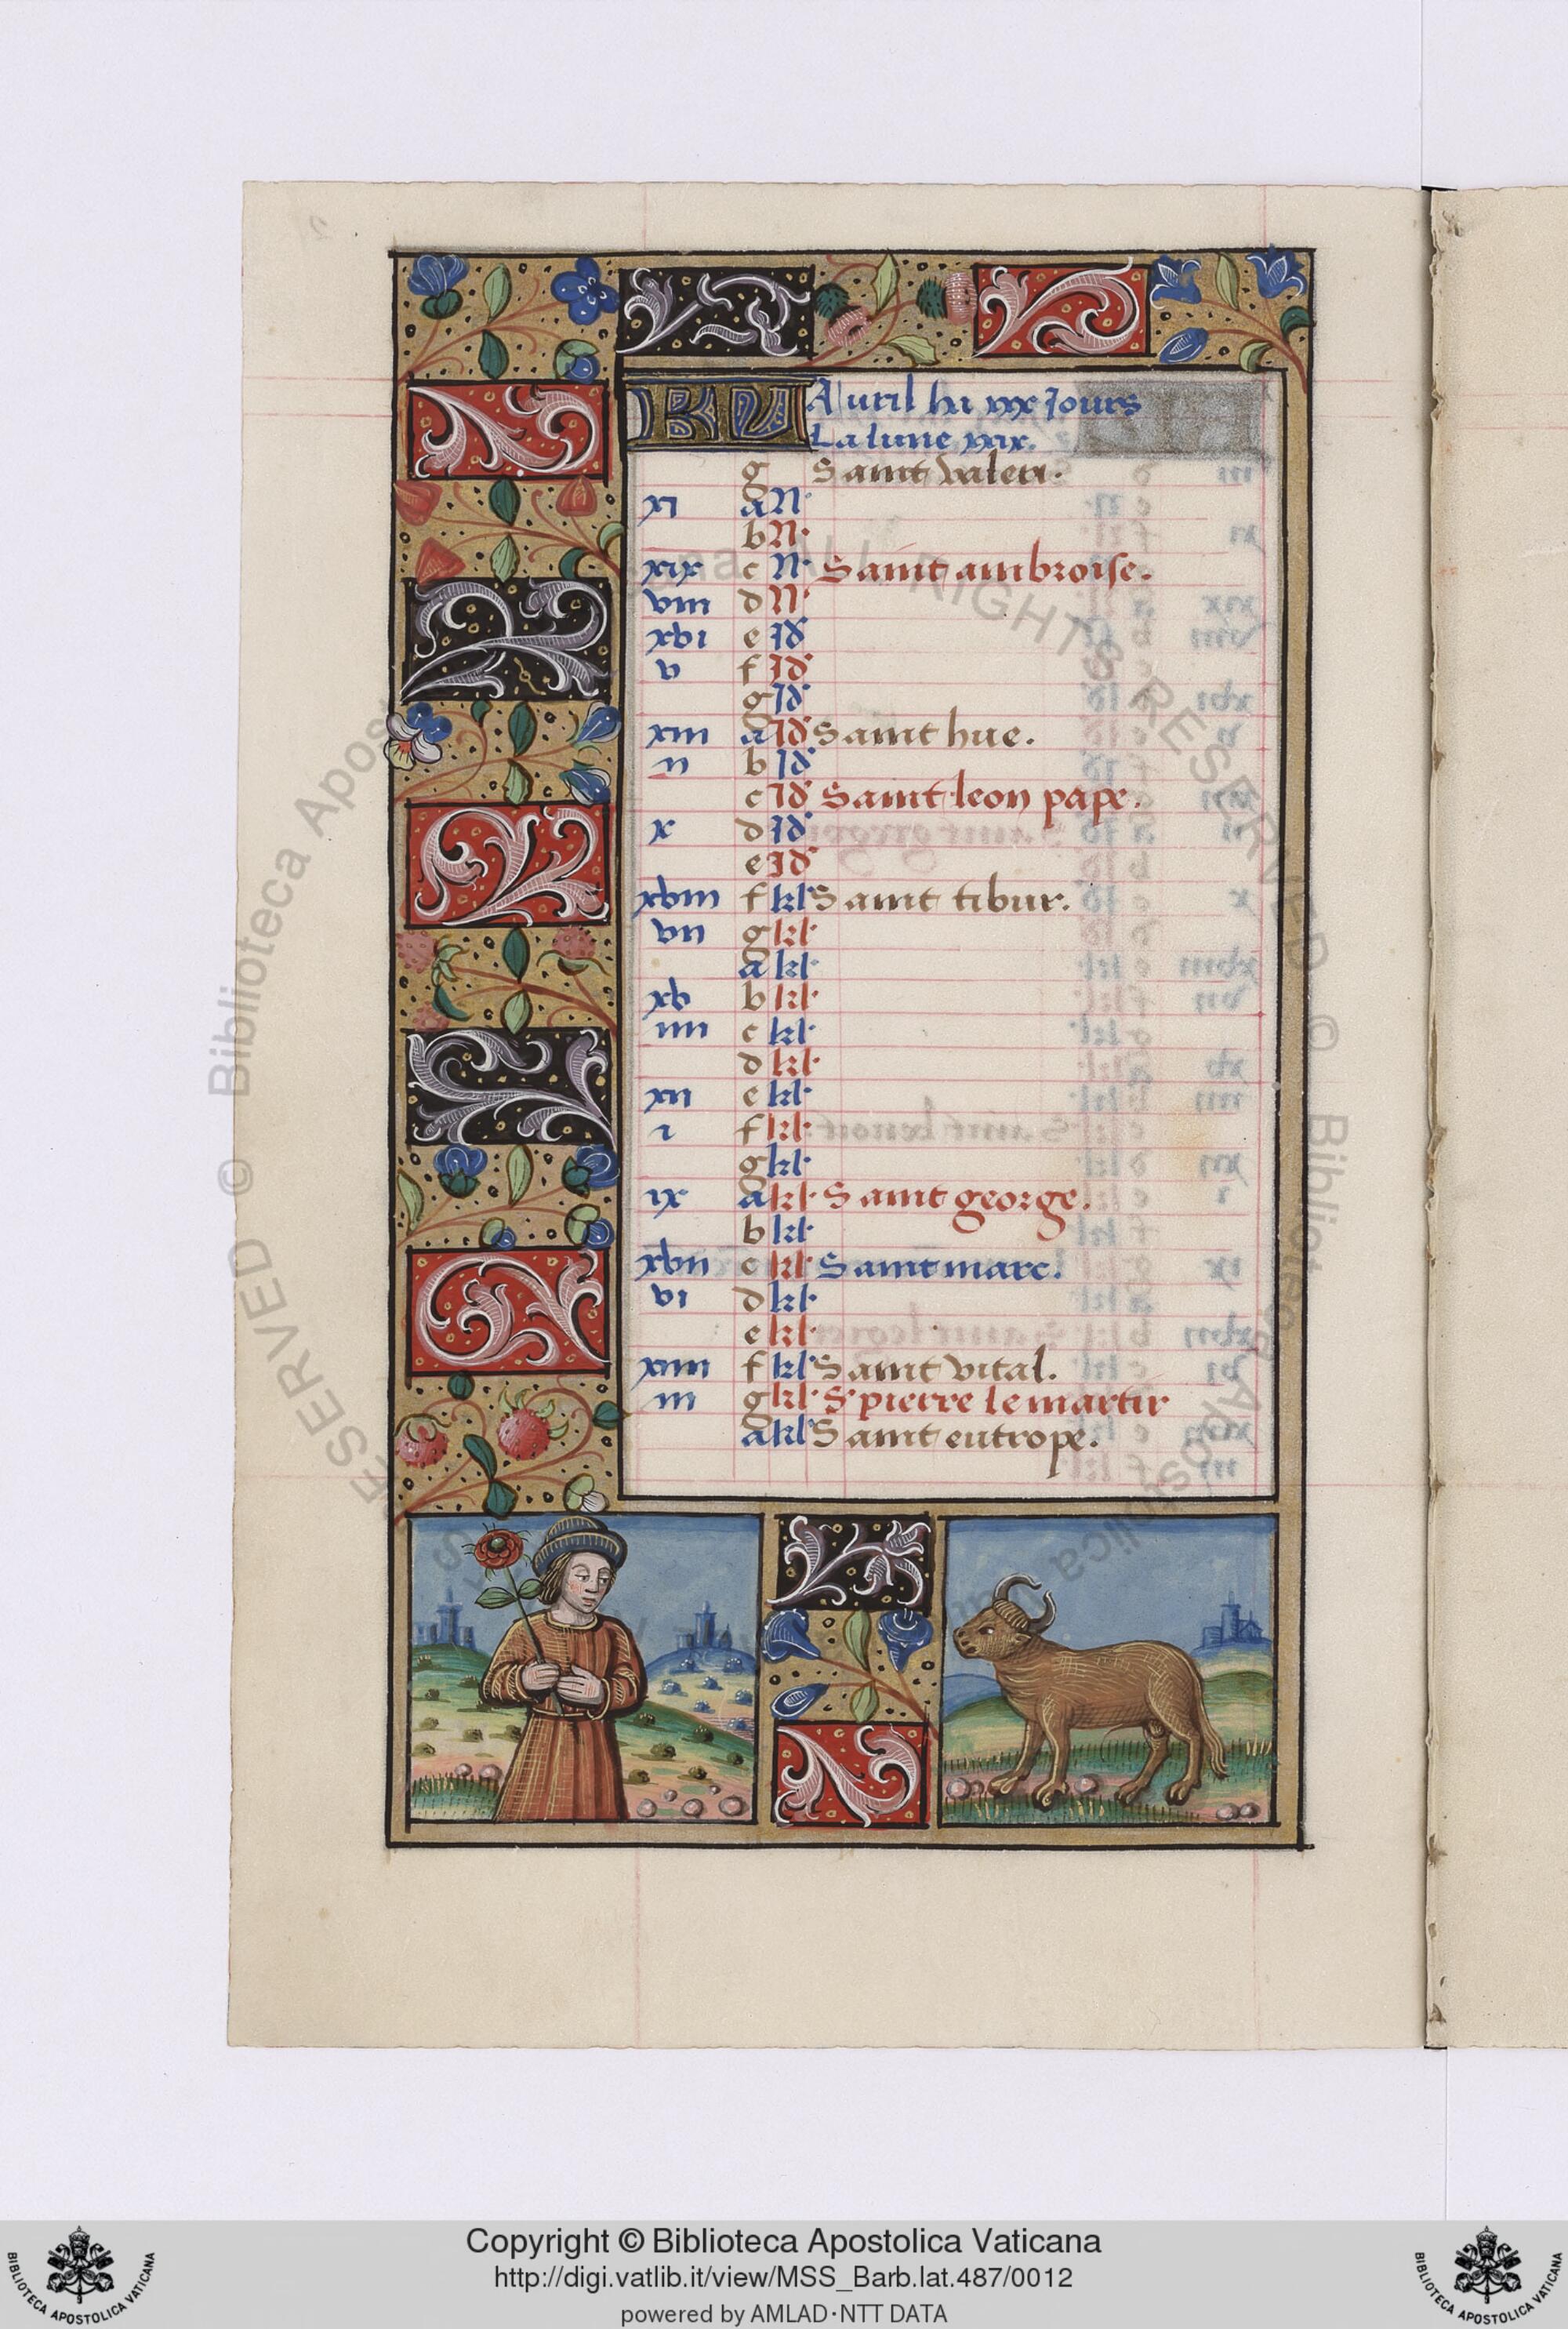 KL Auril ha xxx Jours
La lune xxix.
g Saint valeri.
xi a N.
b N.
xix c N. Saint ambroise.
viii d N.
xvi e Id
v f Id
g Id
xiii a Id Saint hue.
ii b Id
c Id Saint leon pape.
x d Id
e Id
xviii f kl Saint tibur.
vii g kl.
a kl.
xv b kl.
iiii c kl.
d kl.
xii e kl.
i f kl.
g kl.
ix a kl. Saint george.
b kl.
xvii c kl. Saint marc.
vi d kl.
e kl.
xiiii f kl Saint vital.
iii g kl. S. pierre le martir
a kl Saint eutrope.
Copyright © Biblioteca Apostolica Vaticana
http://digi.vatlib.it/view/MSS_Barb.lat.487/0012
powered by AMLAD·NTT DATA
BIBLIOTECA APOSTOLICA VATICANA
BIBLIOTECA APOSTOLICA VATICANA